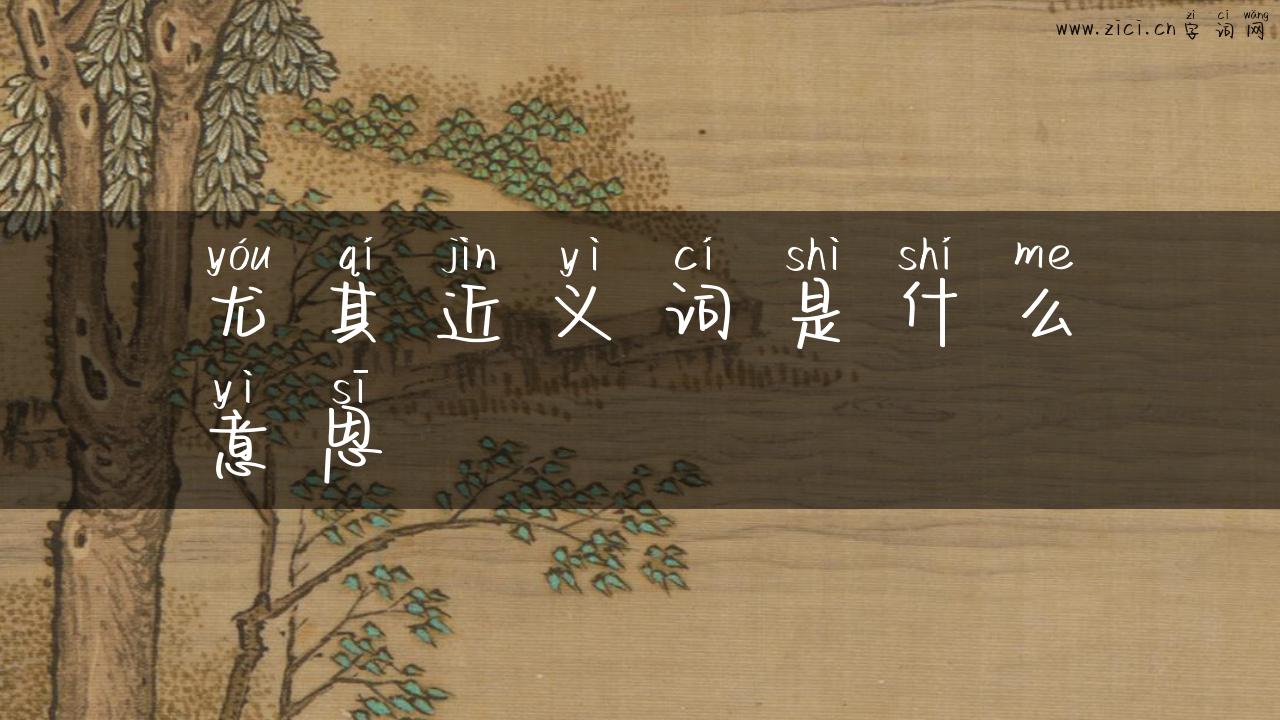 zì cí wǎng
www.zici.cn 字词网
yóu qí jìn yì cí shì shí me
尤其近义词是什么
yì sī
意思